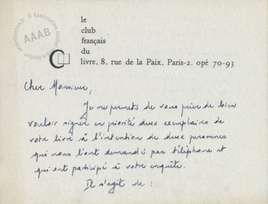 AAAB
le
club
français
du
livre, 8, rue de la Paix, Paris-2. opé 70-93
Cher Monsieur,
Je me permets de vous prier de bien
vouloir signer en priorité deux exemplaires de
votre livre à l'intention de deux personnes
qui nous l'ont demandé par téléphone et
qui ont participé à votre enquête.
Il s'agit de :